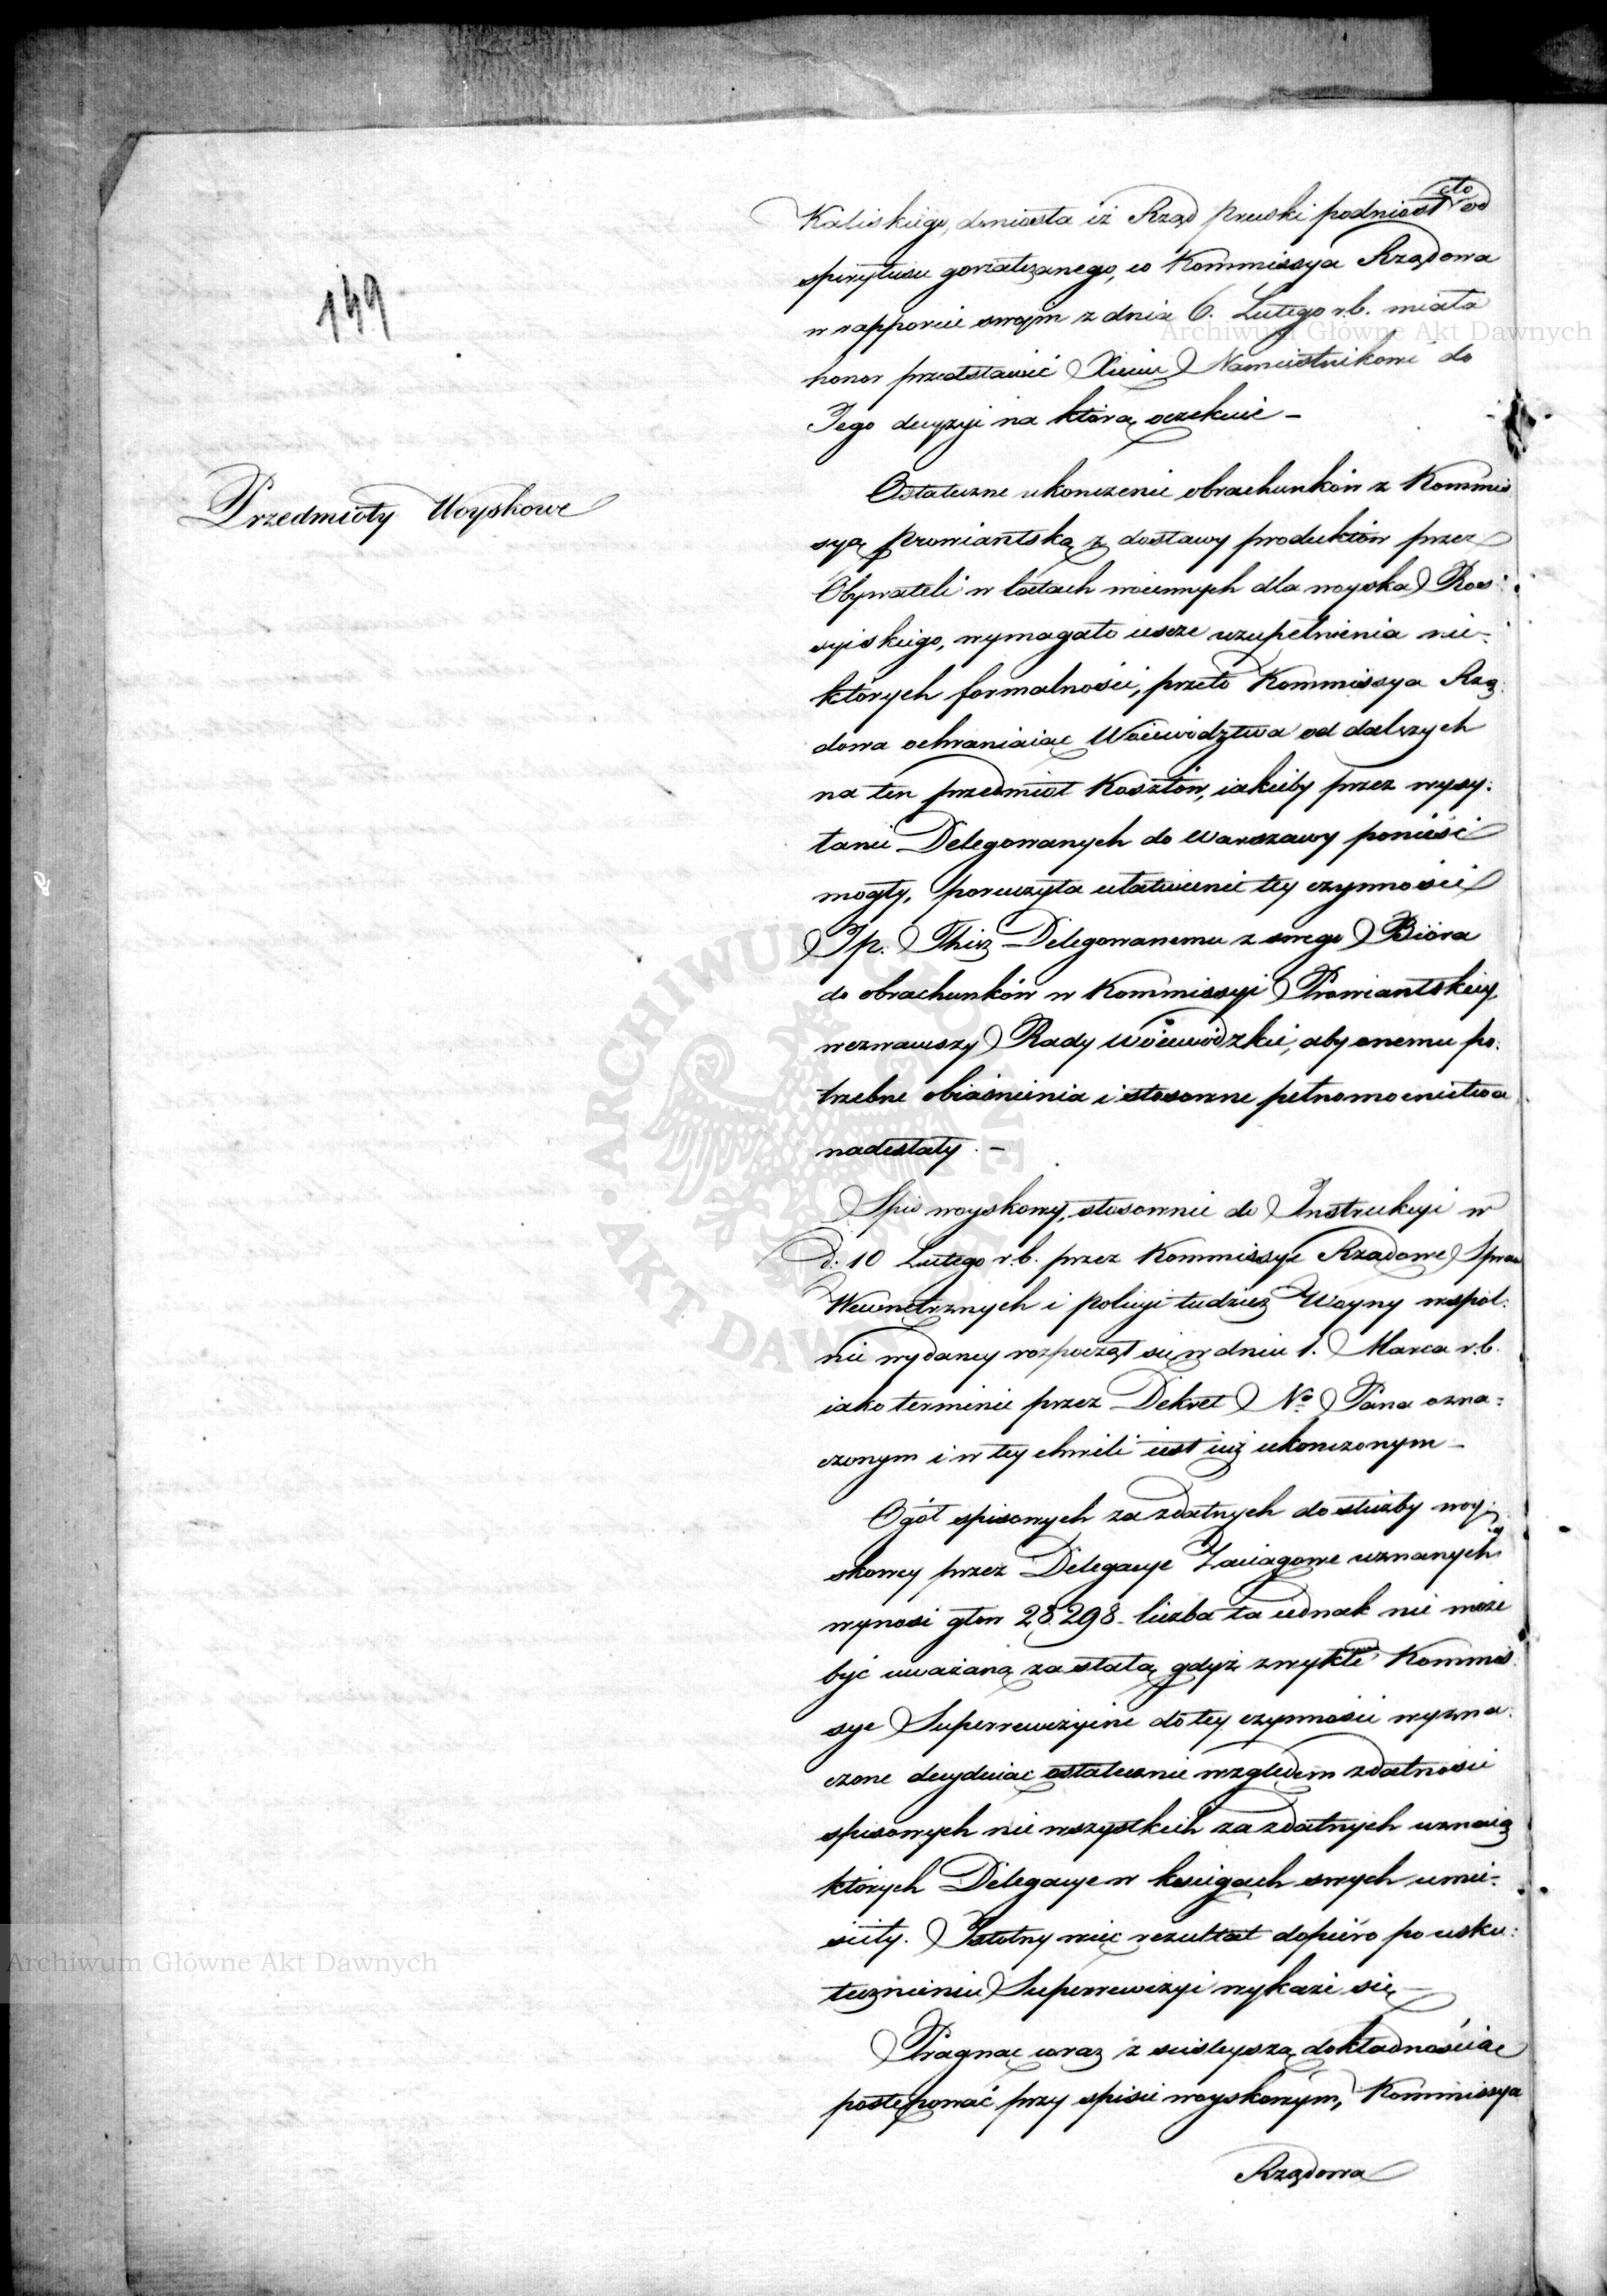 149
Przedmioty Woyskowe
Kaliskiego, doniosła iż Rząd pruski podniosł cło od
spirytusu gorzałczanego, co Kommissya Rządowa
w rapporcie swojm z dnia 6. Lutego r.b. miała
honor przedstawić Xięciu Namiestnikowi do
Jego decyzyi na którą oczekuie –
Ostateczne ukonczenie obrachunków z Kommis
syą prowiantską z dostawy produktów przez
Obywateli w latach woiennych dla woyska Ros:
syiskiego, wymagało iescze uzupełnienia nie-
których formalności, przeto Kommissya Rzą:
dowa ochraniaiąc Woiewództwa od dalszych
na ten przedmiot Kosztów, iakieby przez wysy:
łanie Delegowanych do Warszawy ponieść
mogły, poruczyła ułatwienie tey czynności
Jp. Delegowanemu z swego Bióra
do obrachunków w Kommissyi Prowiantskiey,
wezwawszy Rady Woiewódzkie, aby onemu po:
trzebne obiaśnienia i stosowne pełnomocnictwa
nadesłały. –
Spis woyskowy, stosownie do Instrukcyi w
d. 10 Lutego r.b. przez Kommissye Rządowe Spraw
Wewnętrznych i policyi tudzież Woyny wspól:
nie wydaney rozpoczął się w dniu 1. Marca r.b.
iako terminie przez Dekret No. Pana ozna:
czonym i w tey chwili iest iuż ukonczonym –
Ogół spisowych za zdatnych do służby woy:
skowey przez Delegacye Zaciągowe uznanych
wynosi głow 28.298. liczba ta iednak nie może
być uważaną za stałą gdyż zwykle Kommis
sye Superrewizyine do tey czynności wyzna:
czone decyduiąc ostatecznie względem zdatności
spisowych nie wszystkich za zdatnych uznaią
których Delegacye w księgach swych umie:
ściły. Istotny więc rezultat dopiéro po usku:
tecznieniu Superrewizyi wykaże się –
Pragnąc coraz z ściśleyszą dokładnościąe
postępować przy spisie woyskowym, Kommissya
Rządowa
Archiwum Główne Akt Dawnych
Archiwum Główne Akt Dawnych
ARCHIWUM GŁÓWNE AKT DAWNYCH